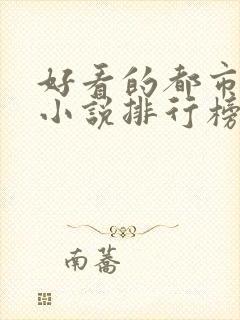 好看的都市
小说排行榜
南蕎